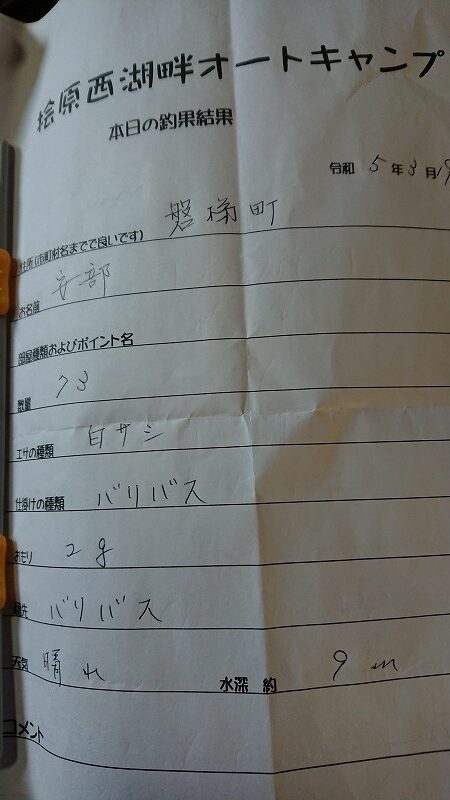 桧原西湖畔オートキャンプ
本日の釣果結果
令和 5年3月19
住所(市町村名まで良いです) 磐梯町
お名前 安部
部屋種類およびポイント名
数量 73
エサの種類 白サシ
仕掛けの種類 バリバス
おもり 2g
穂先 バリバス
天気 晴れ 水深 約 9m
コメント